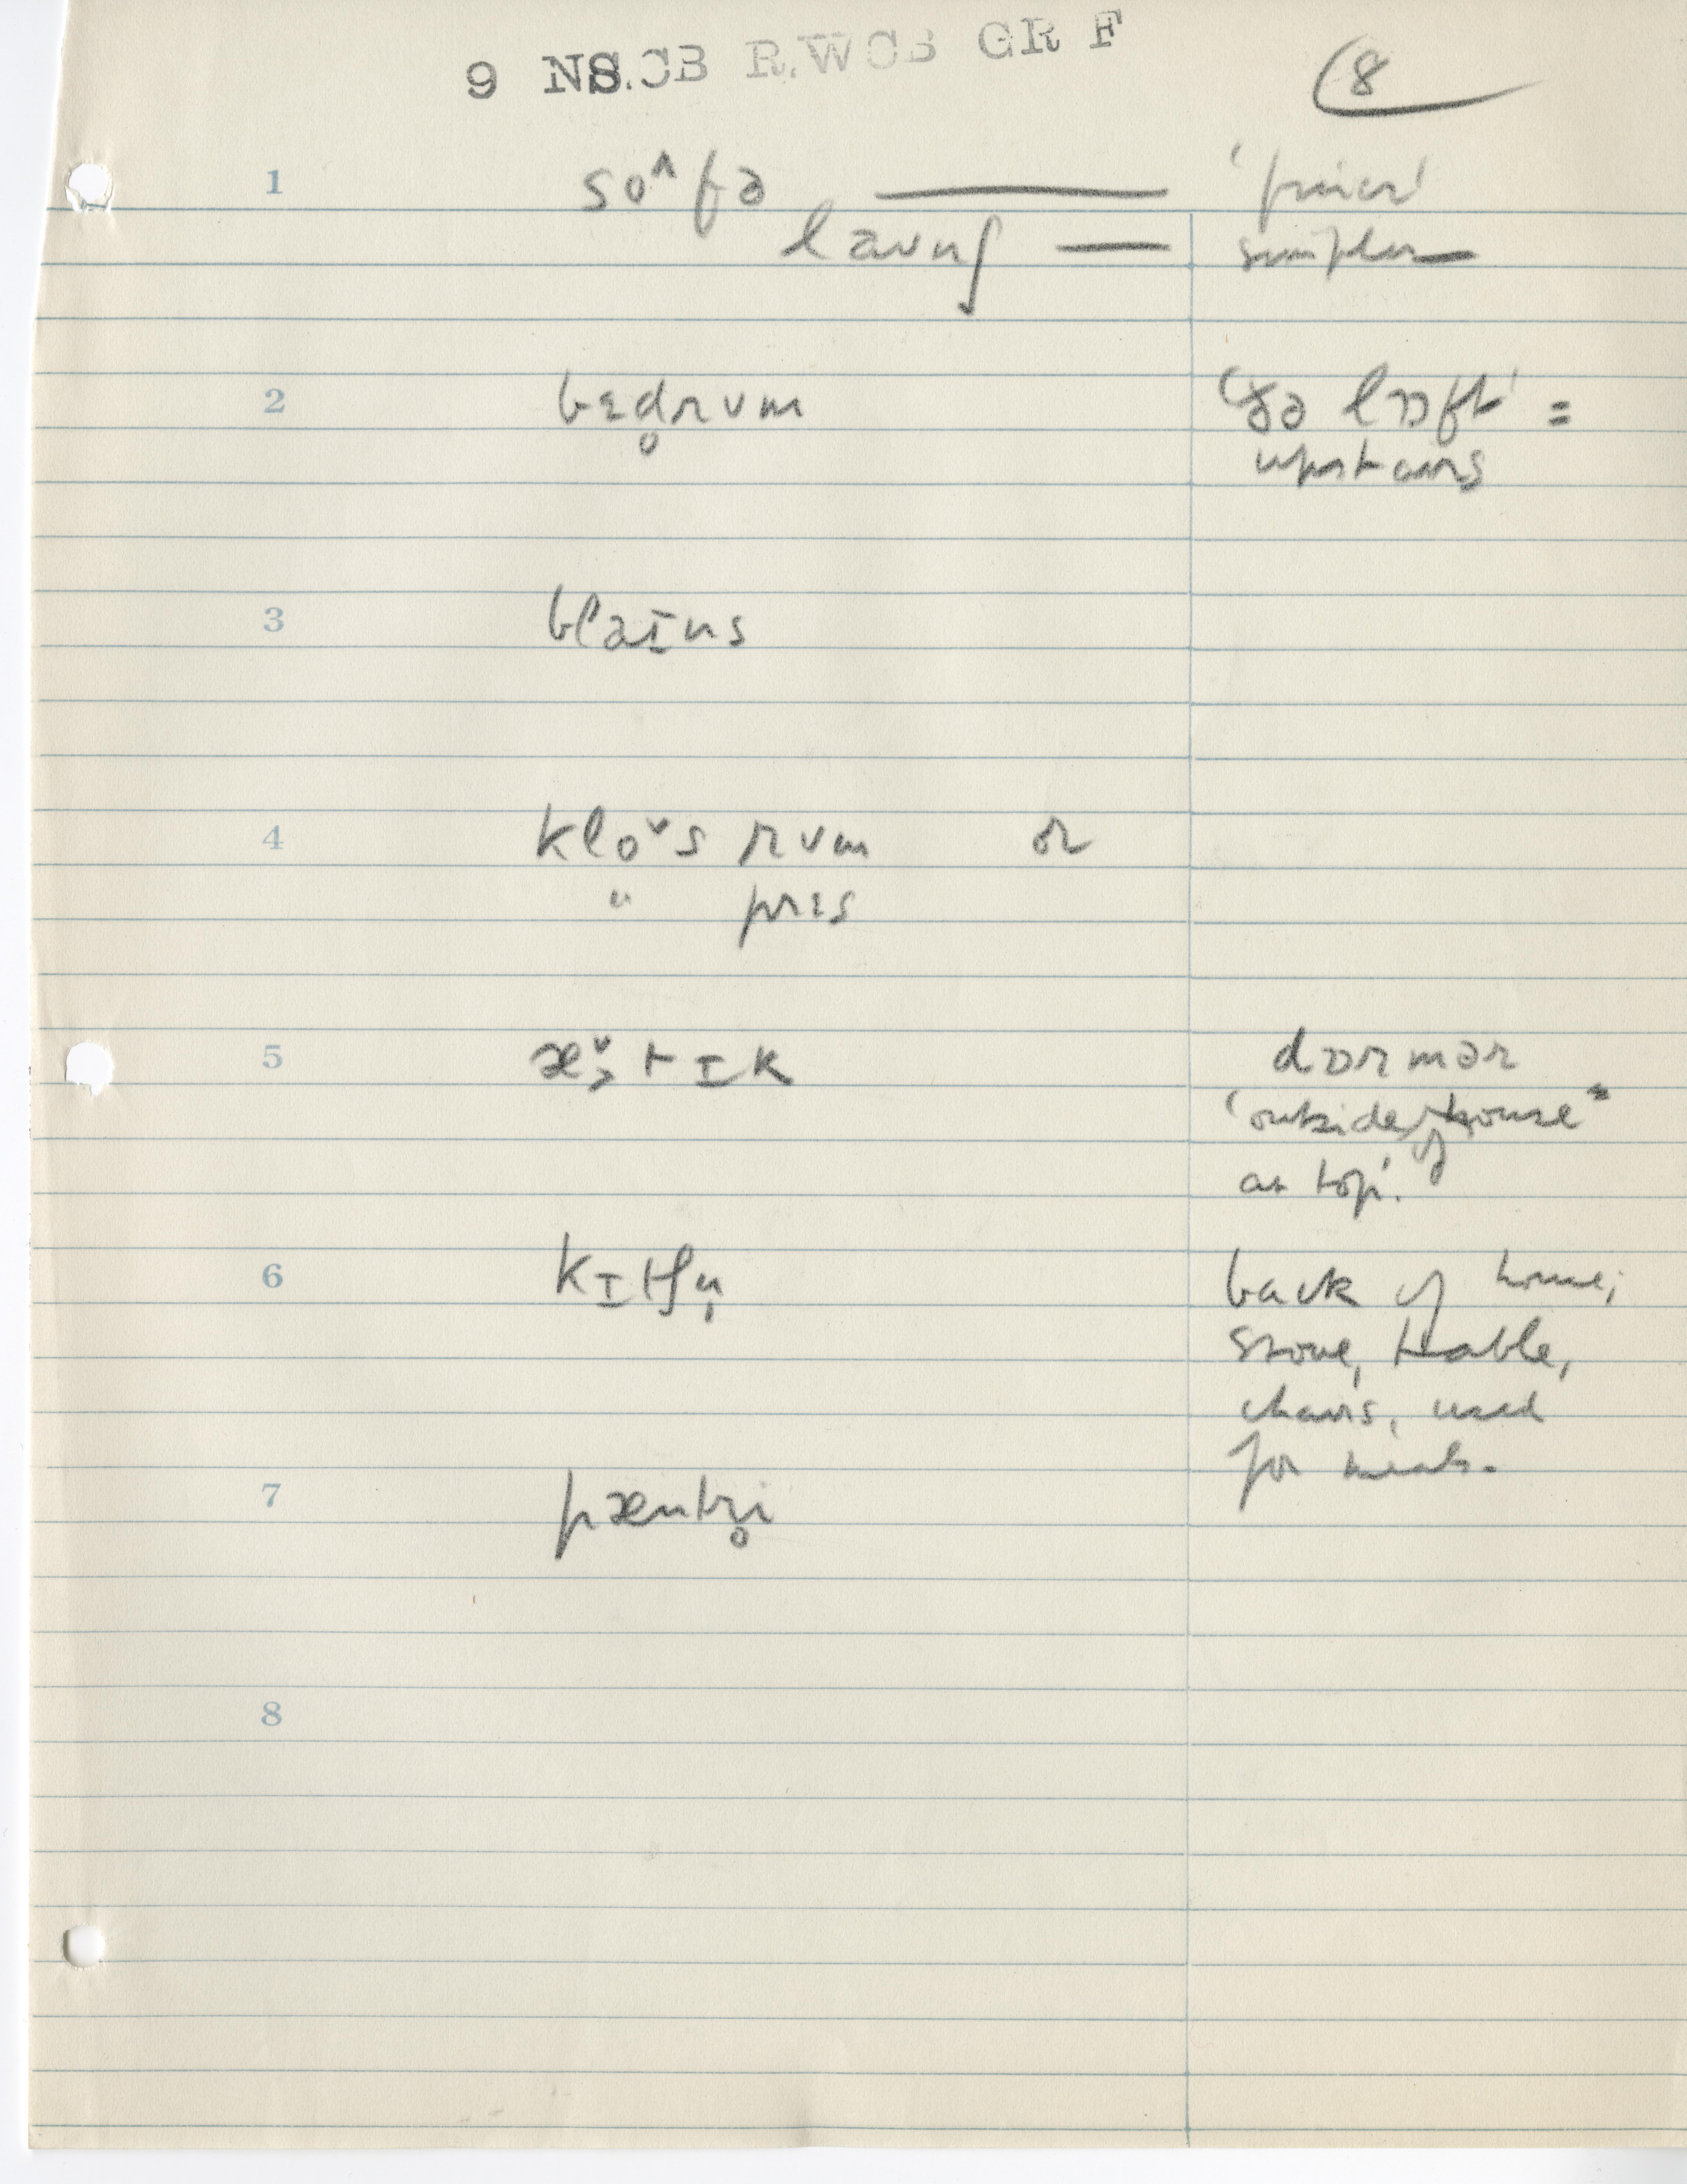 9 NS.CB R.WCB GR F
8
1 so^fə — 'finer'
laʊnʃ — simpler
2 bɛd̥rʊm 'ðə lɒft' =
upstairs
3 blaɪns
4 kloˇs rʊm or
" prɛs
5 æ̌˃tɪk dɒrmər
'outside of house
at top'.
6 kɪtʃn̩ back of house;
stove, table,
chairs, used
for meals.
7 pæntr̥i
8